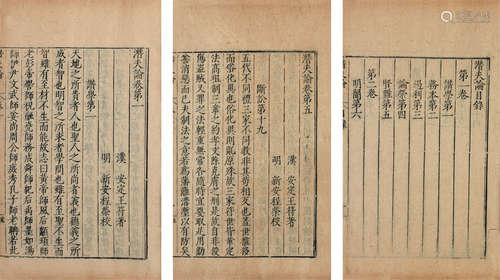 潛夫論目錄
第一卷
讚學第一
務本第二
遏利第三
論榮第四
賢難第五
第二卷
明闇第六
潛夫論卷第五
漢 安定王符著
明 新安程榮校
斷訟第十九
五代不同禮三家不同教非其苟相反也蓋世推移
而俗化異也俗化異則亂原殊故三家符世皆革定
法高祖制三章之約孝文除克膚之刑是故自非殺
傷盜賊文罪之法輕重無常各隨時宜要取足用勸
善消惡而已夫制法之意若為藩籬溝塹以有防矣
潛夫論卷第一
漢 安定王符著
明 新安程榮校
讚學第一
天地之所貴者人也聖人之所尚者義也德義之所
成者智也明智之所求者學問也雖有至聖不生而
智雖有至材不生而能故志曰黃帝師風后顓頊師
老彭帝嚳師祝融堯師務成舜師紀后禹師墨如湯
師伊尹文武師姜尚周公師庶秀孔子師老聃若此